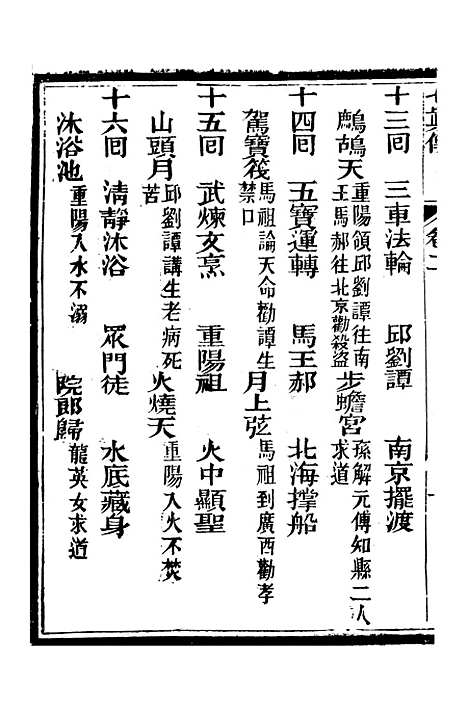 十三囘 三車法輪 邱劉譚 南京擺渡
鷓鴣天 重陽領邱劉譚往南 王馬郝往北京勸殺盜 步蟾宮 孫解元傅知縣二人 求道
十四囘 五寶運轉 馬王郝 北海撑船
駕寶筏 馬祖論天命勸譚生 禁口 月上弦 馬祖到廣西勸孝
十五囘 武煉文烹 重陽祖 火中顯聖
山頭月 邱劉譚講生老病死 苦 火燒天 重陽入火不焚
十六囘 清靜沐浴 眾門徒 水底藏身
沐浴池 重陽入水不溺 院郎歸 龍英女求道